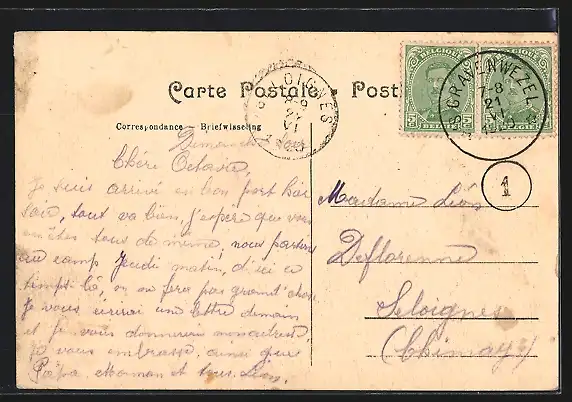 Carte Postale - Post
Correspondance - Briefwisseling
BELGIQUE
BELGIE
5
OIGNIES
8-9
VI
S'GRAVENWEZEL
7-8
21
VI
1
Dimanche soir
Chère Octavie,
Je suis arrivé en bon port hier
soir, tout va bien, j'espère que vous
êtes tous de même, nous partons
au camp Jeudi matin, d'ici a
temps là, on ne fera pas grand'chose.
Je vous écrirai une lettre demain
et je vous donnerai mon adresse.
Je vous embrasse, ainsi que
Papa, Maman et tous. Léon.
Madame Léon
Deflorenne
Seloignes
(Chimay)